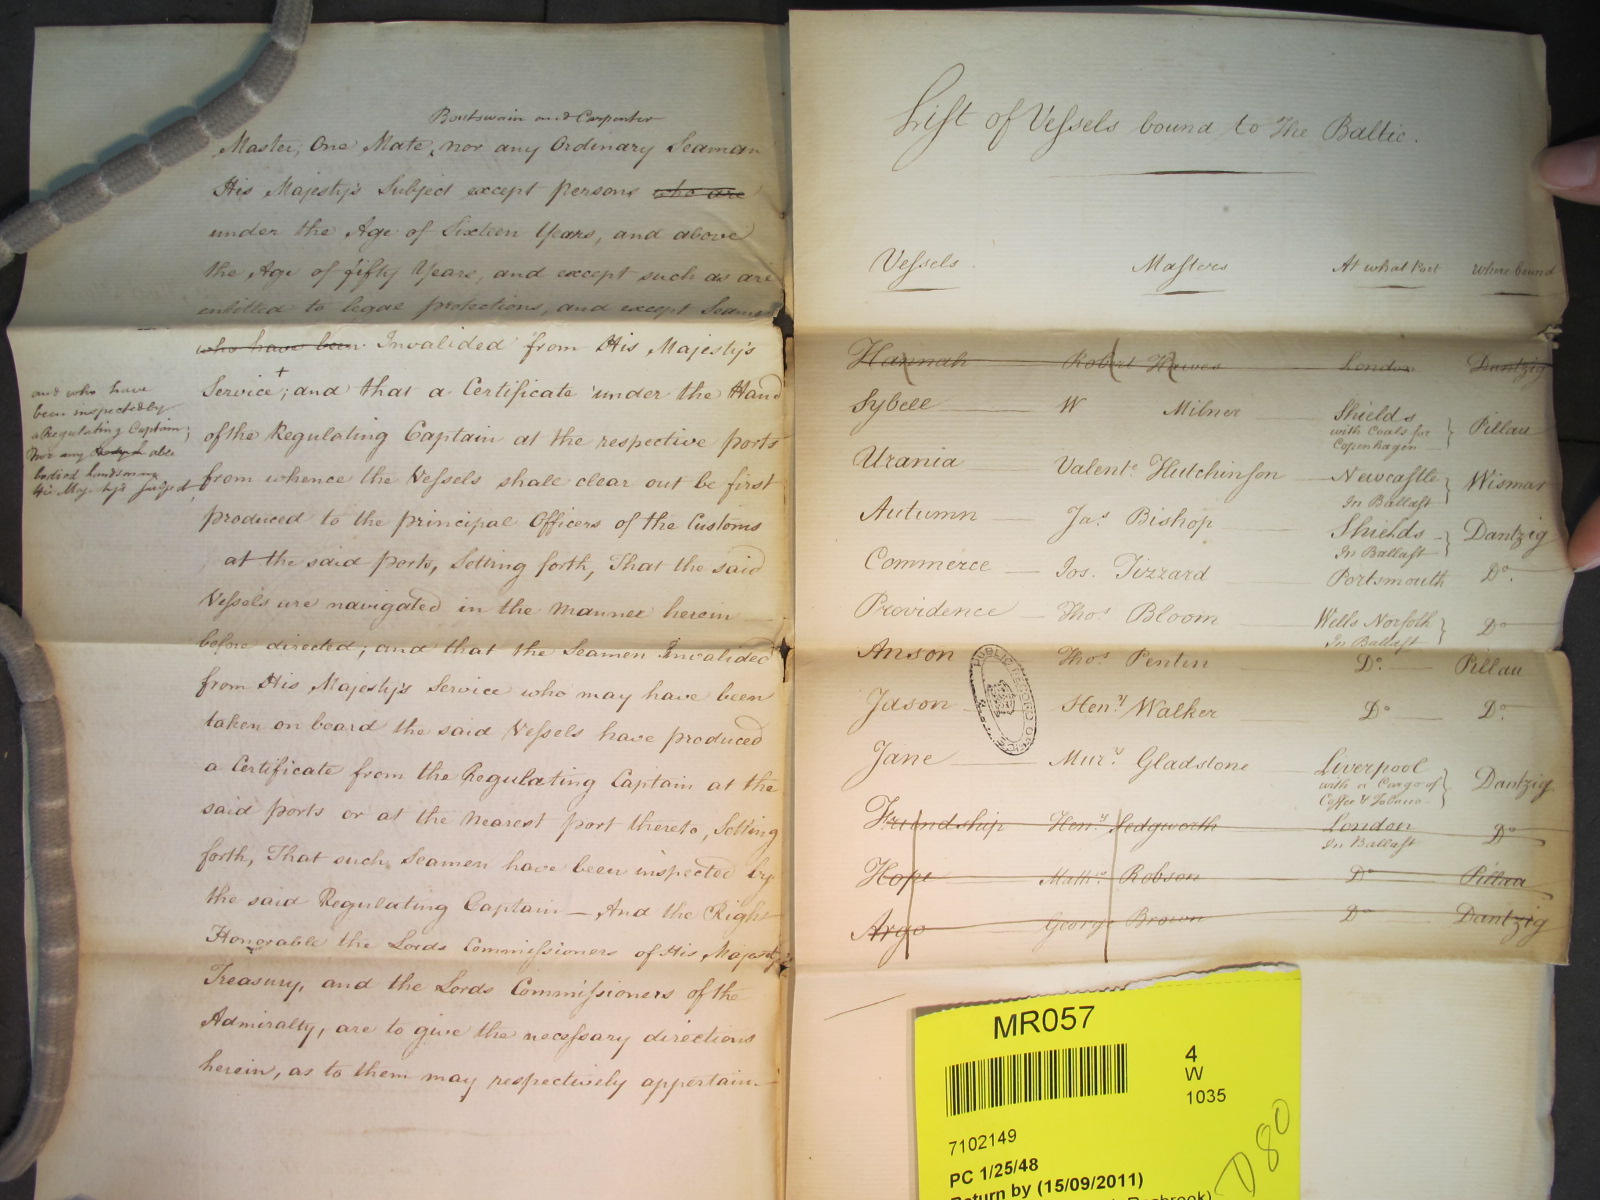 Boatswain and Carpenter
Master, One Mate, nor any Ordinary Seaman
His Majesty's Subject except persons who are
under the Age of Sixteen Years, and above
the Age of fifty Years, and except such as are
entitled to legal protections, and except Seamen
who have been Invalided from His Majesty's
Service; and that a Certificate under the Hand
of the Regulating Captain at the respective ports
from whence the Vessels shall clear out be first
produced to the principal Officers of the Customs
at the said ports, Setting forth, That the said
Vessels are navigated in the Manner herein
before directed; and that the Seamen Invalided
from His Majesty's Service who may have been
taken on board the said Vessels have produced
a Certificate from the Regulating Captain at the
said ports or at the nearest port thereto, Setting
forth, That such Seamen have been inspected by
the said Regulating Captain — And the Right
Honorable the Lords Commissioners of His Majesty's
Treasury, and the Lords Commissioners of the
Admiralty, are to give the necessary directions
herein, as to them may respectively appertain.—
and who have
been inspected by
a Regulating Captain;
Nor any able
bodied Landsman
His Majesty's Subject,
List of Vessels bound to The Baltic.
Vessels. Masters At what Port where bound
Hannah Robert Hawes London Dantzig
Sybell W Milner Shields with Coals for Copenhagen } Pillau
Urania Valent.e Hutchinson Newcastle In Ballast } Wismar
Autumn Jas. Bishop Shields In Ballast } Dantzig
Commerce Jos. Tizzard Portsmouth Do.
Providence Thos. Bloom Wells Norfolk In Ballast } Do
Anson Thos. Penten Do. Pillau
Jason Heny. Walker Do Do.
Jane Mury. Gladstone Liverpool with a Cargo of Coffee & Tobacco } Dantzig
Friendship Heny. Hedgworth London In Ballast Do
Hope Mattw. Robson Do Pillau
Argo George Brown Do Dantzig
PUBLIC RECORD OFFICE
MR057
4
W
1035
7102149
PC 1/25/48
Return by (15/09/2011)
D 80